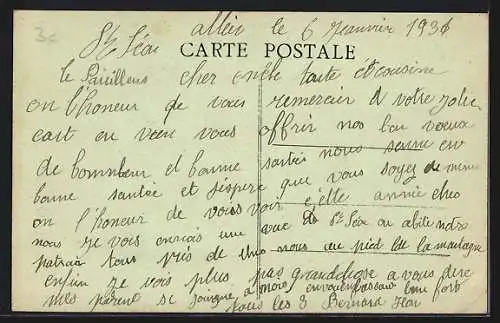 3c
St Léon allein le 6 Jeanvier 1936
CARTE POSTALE
le Papillons cher onête toute et cousine
on l'honeur de vous remercier d votre jolie
cart on voeu vous offrir nos bon voeux
de bonneur et bonne santée nous somme en
bonne santée et j'éspere que vous soyez de meme
on l'honeur de vous voir s'elle année cheo
nous ze vois envoiés une vue de St Léon ou abite notre
patrain tous près de cheo nous au pied de la montagne
enfin ze vois plus pas granddiose a vous dire
mes parent se joingne a moi en vous embrassan bien fort
tous les 3 Bernard Léon